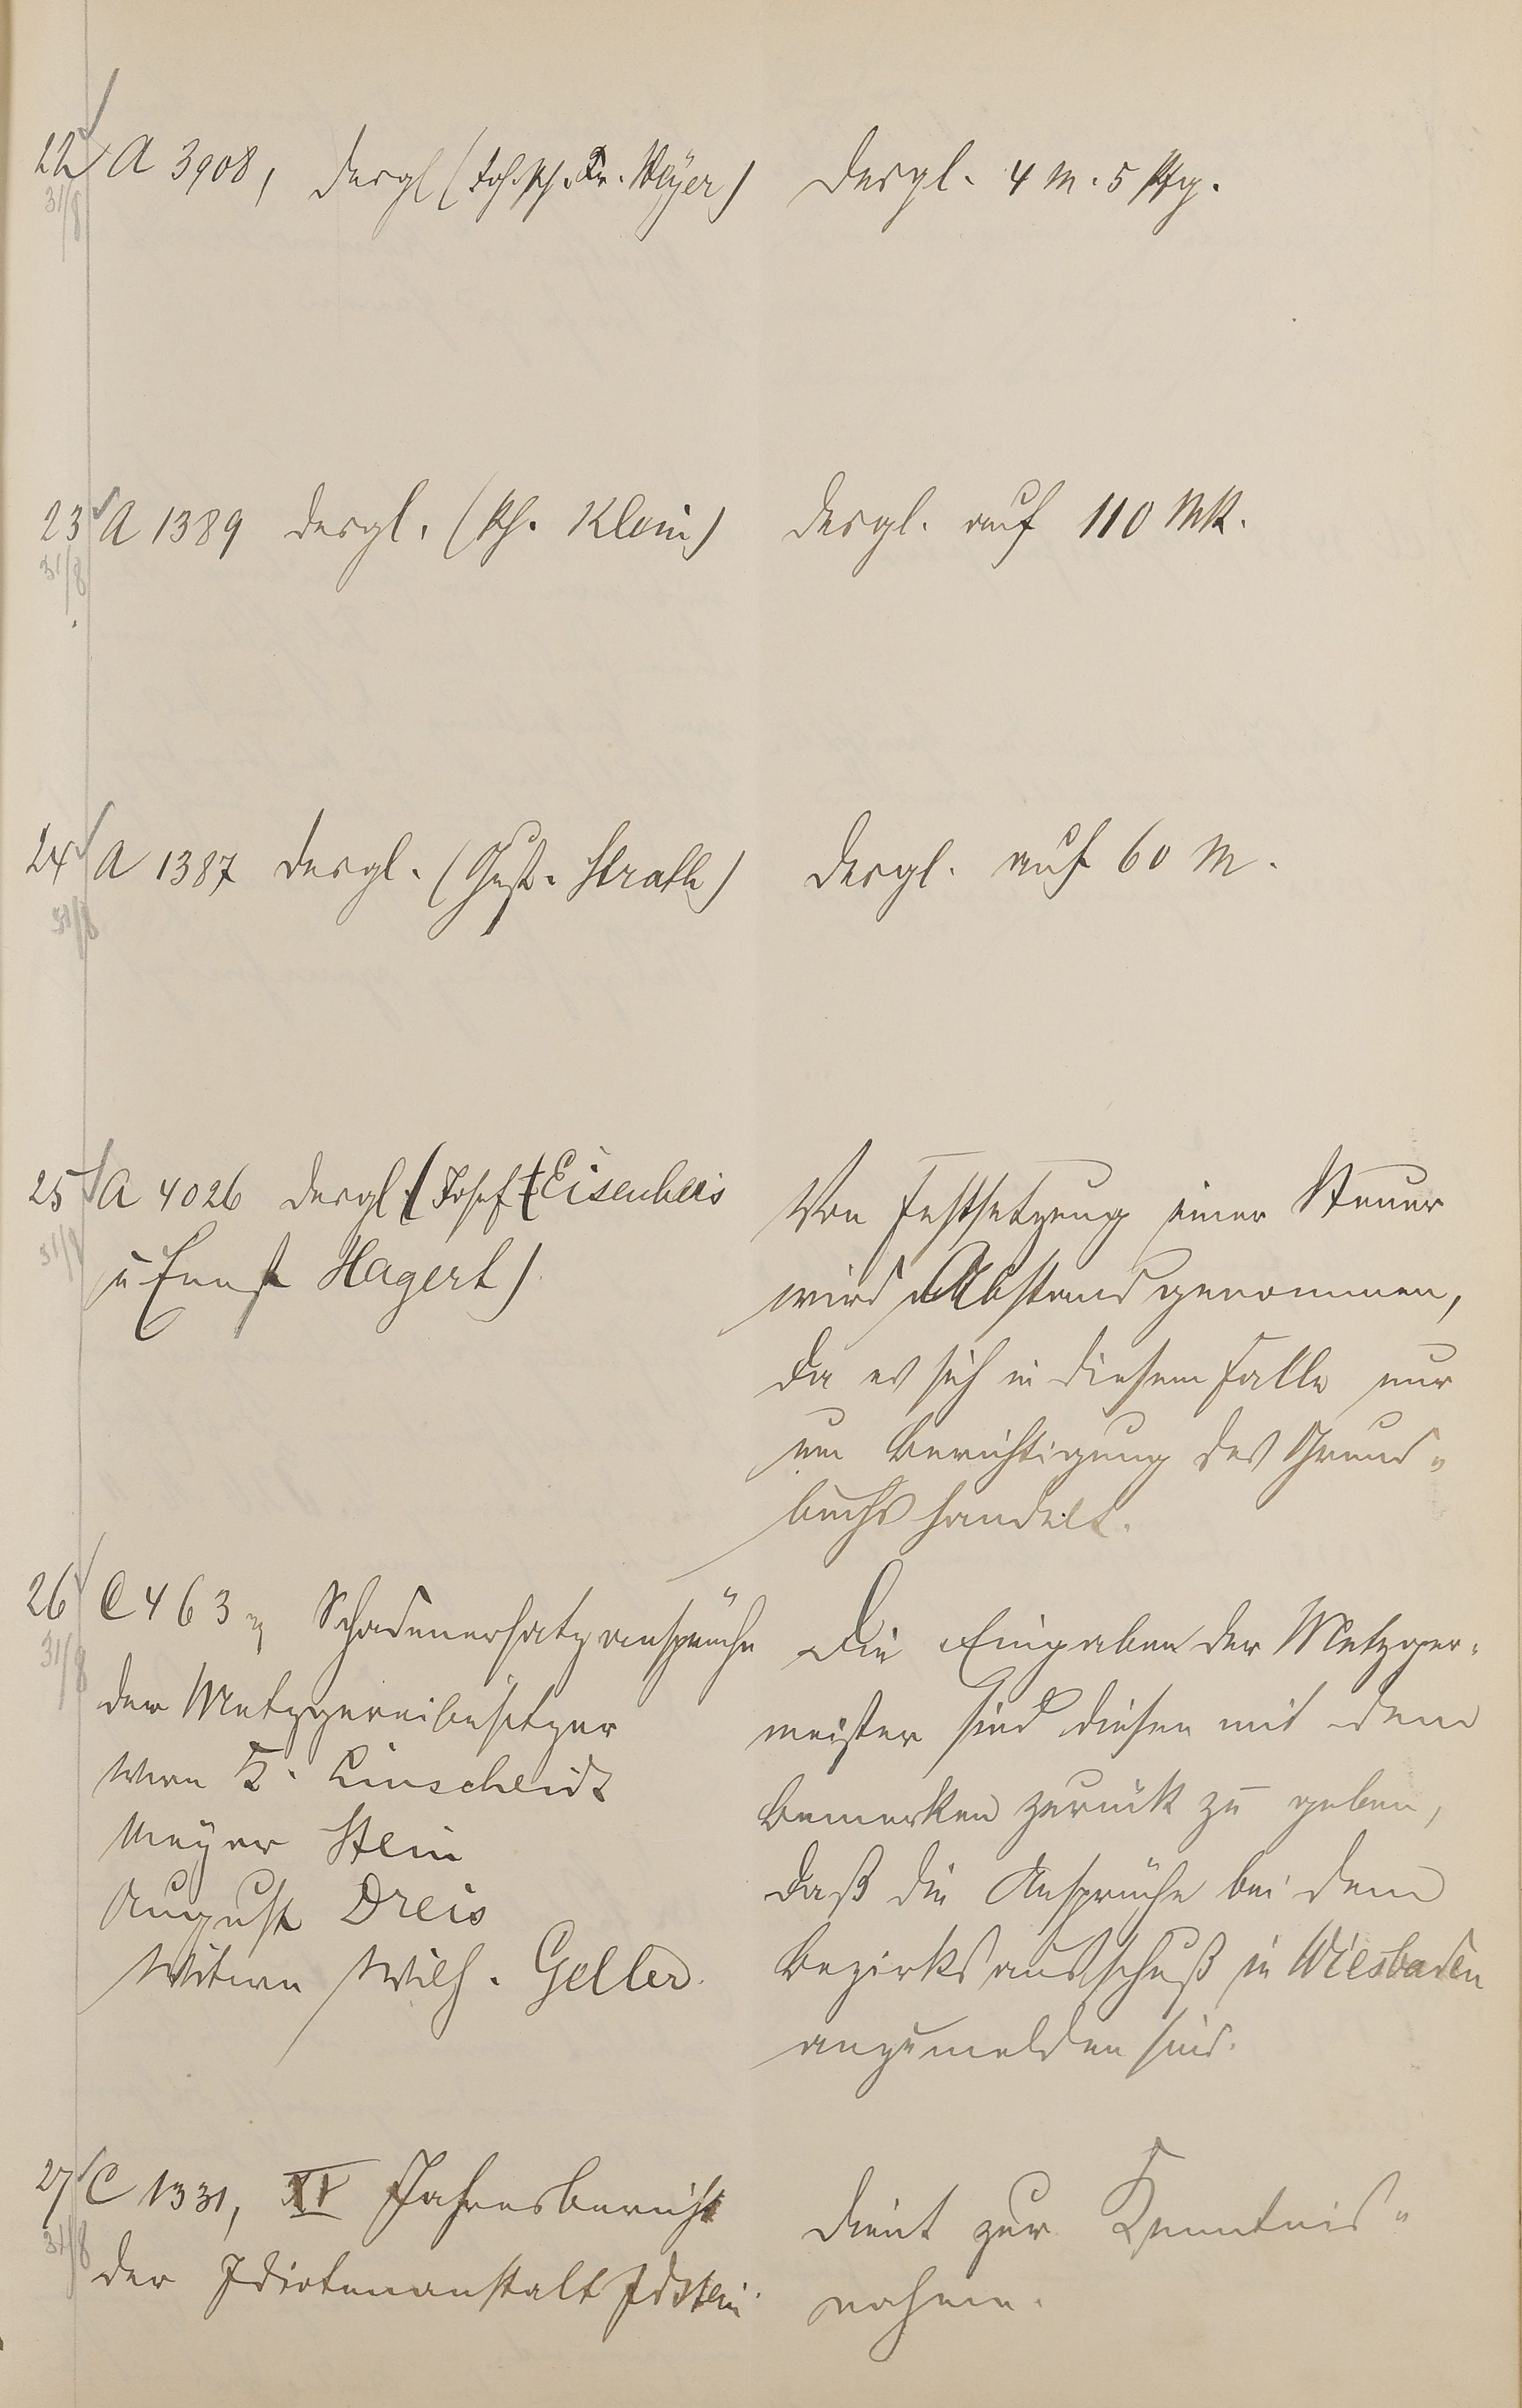 22 A 3908, desgl (Joh. Ph. Fr. Meyer) desgl. 4 M. 5 Pfg.
31/8
23 A 1389 desgl. (Ph. Klein) desgl. auf 110 Mk.
31/8
24 A 1387 desgl. (Gust. Strath) desgl. auf 60 M.
31/8
25 A 4026 desgl (Josef Eisenheis
31/8
u Ernst Hagert)
Von Festsetzung einer Steuer
wird Abstand genommen,
da es sich in diesem Falle nur
um Berichtigung des Grund-
buchs handelt.
26 C 463, Schadenersatzansprüche
31/8
der Metzgereibesitzer
Wwe F. Linscheidt
Meyer Stein
August Dreis
Witwe Wilh. Geller.
Die Eingaben der Metzger-
meister sind diesen mit dem
Bemerken zurück zu geben,
daß die Ansprüche bei dem
Bezirksausschuß in Wiesbaden
anzumelden sind.
27 C 1331, XV Jahresbericht
31/8
der Idiotenanstalt Idstein.
dient zur Kenntnis-
nahme.